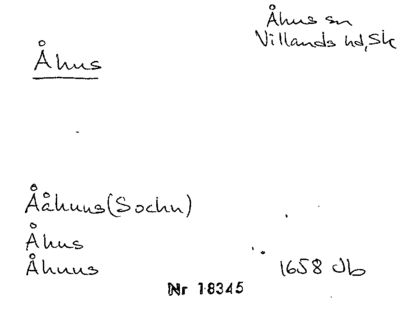 Åhus sn
Villands hd, Sk
Åhus
Ååhuus (Sochn)
Åhus
Åhuus
1658 Jb
Nr 18345